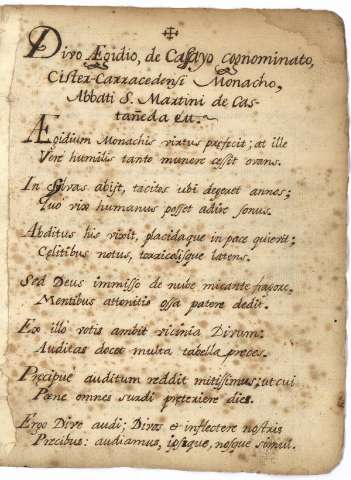 Divo Ægidio, de Casayo cognominato,
Cister-Carracedensi Monacho,
Abbati S. Martini de Cas-
tañeda &u.
Ægidium Monachis virtus præfecit; at ille
Vere humilis tanto munere cessit ovans.
In sylvas abijt, tacitos ubi degeret annos;
Quo vix humanus posset adire sonus.
Abditus his vixit, placidaque in pace quievit;
Cælitibus notus, terricolisque latens.
Sed Deus immisso de nube micante fragore,
Mentibus attonitis ossa patere dedit.
Ex illo votis ambit vicinia Divum:
Auditas docet multa tabella preces.
Præcipue auditum reddit mitissimus; ut cui
Pæne omnes surdi præteriere dies.
Ergo Dive audi; Divos et inflectere nostris
Præcibus: audiamus, ipsique, nosque simul.